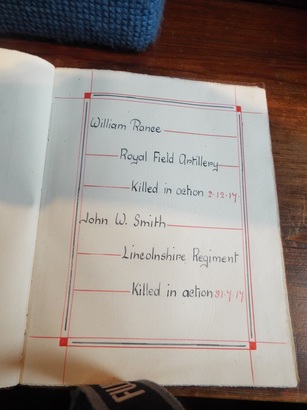 William Rance
Royal Field Artillery
Killed in action 2-12-17
John W. Smith
Lincolnshire Regiment
Killed in action 31-7-17